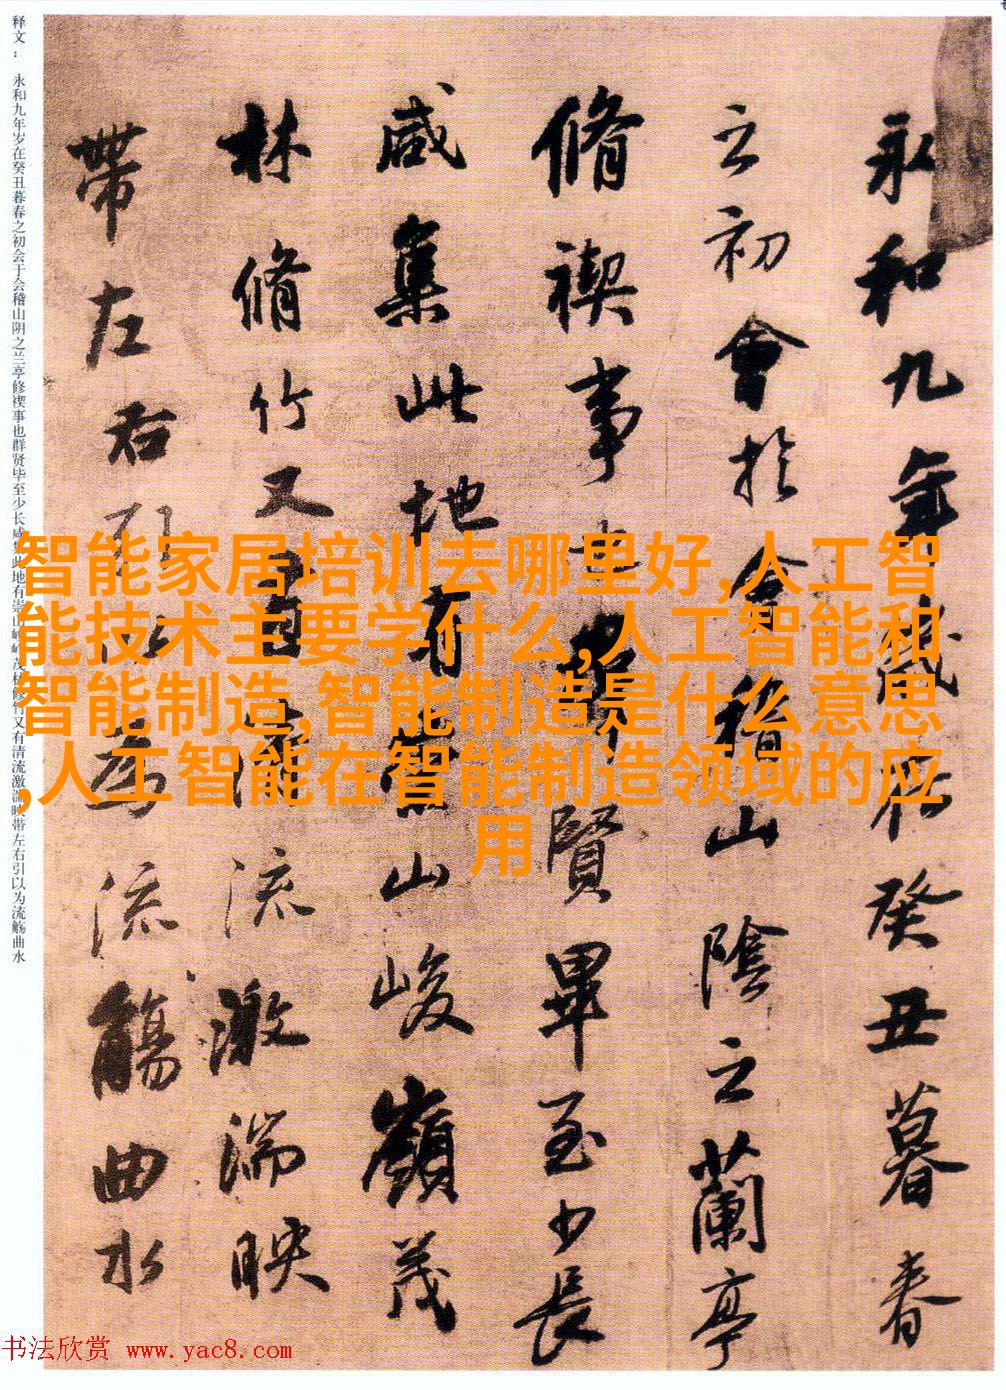 永和九年歲在癸丑暮春
之初會於會稽山陰之蘭亭
脩禊事也羣賢畢至少長
咸集此地有崇山峻嶺茂
林脩竹又有清流激湍映
帶左右引以為流觴曲水
释文：永和九年岁在癸丑暮春之初会于会稽山阴之兰亭修禊事也群贤毕至少长咸集此地有崇山峻岭茂林修竹又有清流激湍映带左右引以为流觞曲水
智能家居培训去哪里好,人工智
能技术主要学什么,人工智能和
智能制造,智能制造是什么意思
,人工智能在智能制造领域的应
用
书法欣赏 www.yac8.com